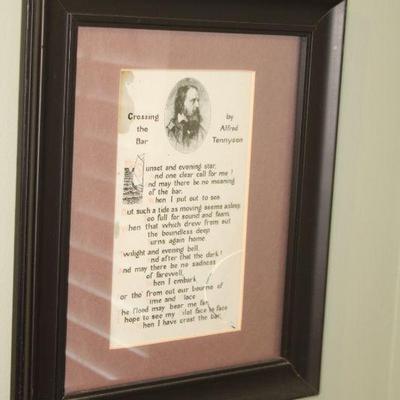 Crossing
the
Bar
by
Alfred
Tennyson
unset and evening star,
nd one clear call for me!
nd may there be no moaning
of the bar,
hen I put out to sea
ut such a tide as moving seems asleep
oo full for sound and foam,
hen that which drew from out
the boundless deep
urns again home.
wilight and evening bell,
nd after that the dark!
nd may there be no sadness
of farewell,
hen I embark
or tho' from out our bourne of
ime and lace
he flood may bear me far,
hope to see my ilot face to face
hen I have crost the bar.